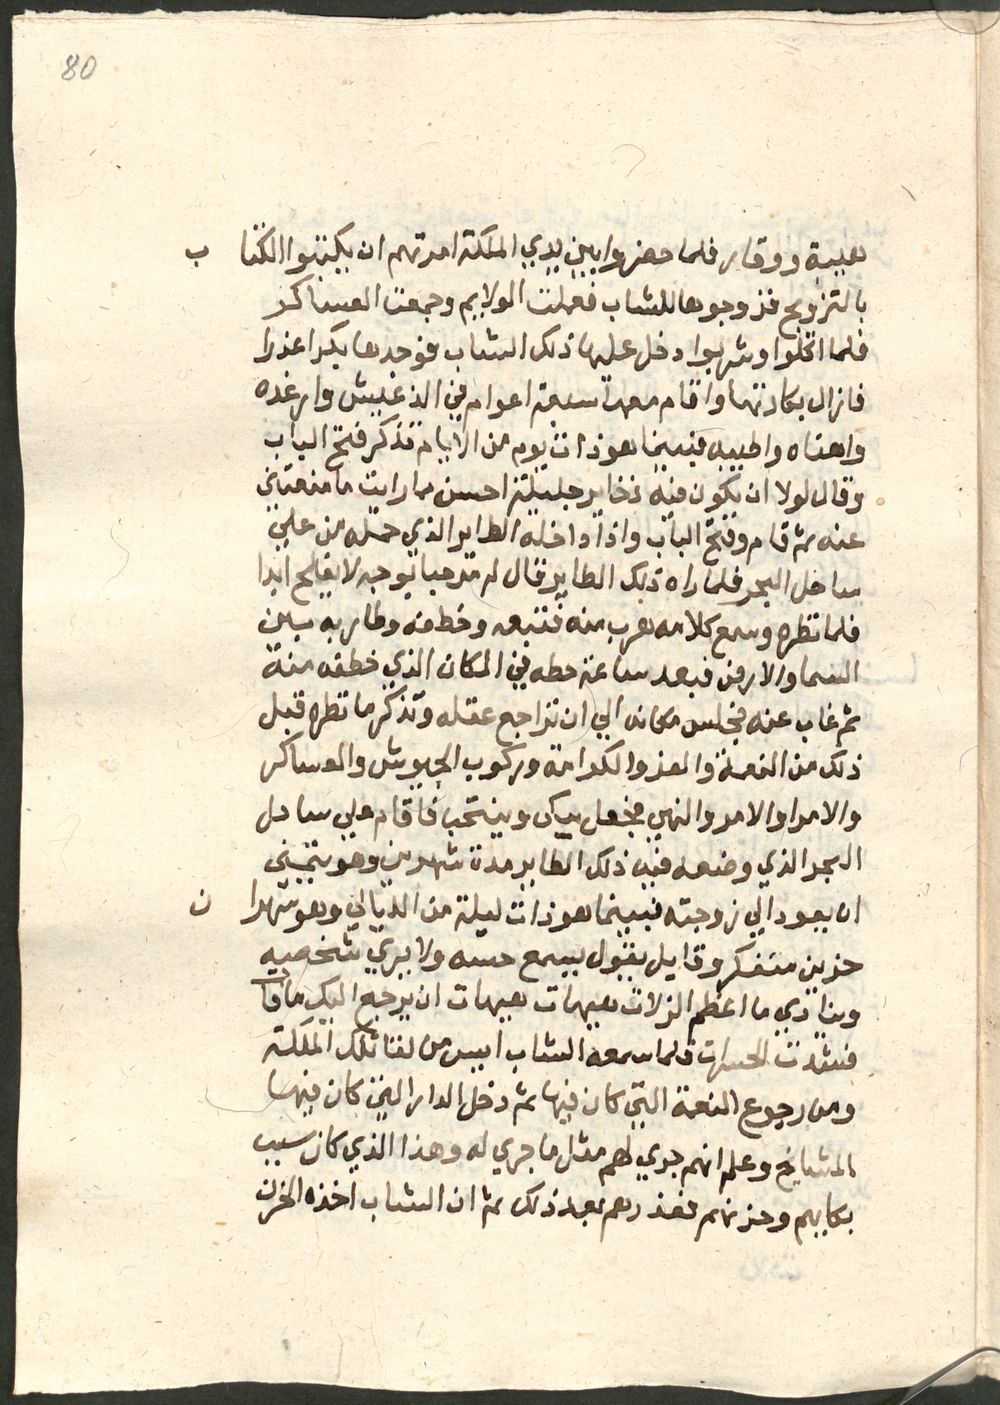 80
هيبة ووقار فلما حضروا بين يدي الملكة امرتهم ان يكتبوا الكتا ب
بالتزويج فزوجوها للشاب فعملت الولايم وجمعت العساكر
فلما اكلوا وشربوا دخل عليها ذلك الشاب فوجدها بكرا عذرا
فازال بكارتها واقام معها سبعة اعوام في الذ عيش وارغده
واهناه واطيبه فبينما هو ذات يوم من الايام تذكر فتح الباب
وقال لولا ان يكون فيه ذخاير جليلة احسن مما رايت ما منعتني
عنه ثم قام وفتح الباب واذا داخله الطاير الذي حمله من علي
ساحل البحر فلما راه ذلك الطاير قال له مرحبا بوجه لا يفلح ابدا
فلما نظره وسمع كلامه هرب منه فتبعه وخطفه وطار به بين
السما والارض فبعد ساعة حطه في المكان الذي خطفه منه
ثم غاب عنه فجلس مكانه الي ان تراجع عقله وتذكر ما نظره قبل
ذلك من النعمة والعز والكرامة وركوب الجيوش والعساكر
والامرا والامر والنهي فجعل يبكي وينتحب فاقام علي ساحل
البحر الذي وضعه فيه ذلك الطاير مدة شهرين وهو يتمني
ان يعود الي زوجته فبينما هو ذات ليلة من الليالي وهو سهرا ن
حزين متفكر وقايل يقول يسمع حسه ولا يري شخصيه
وينادي ما اعظم الزلات هيهات هيهات ان يرجع اليك ما فا
الحسرات فلما سمعه الشاب ايس من لقا تلك الملكة
ومن رجوع النعمة التي كان فيها ثم دخل الدار التي كان فيها
المشايخ وعلم انهم جري لهم مثل ما جري له وهذا الذي كان سبب
بكايهم وحزنهم فعذرهم بعد ذلك ثم ان الشاب اخذه الحزن